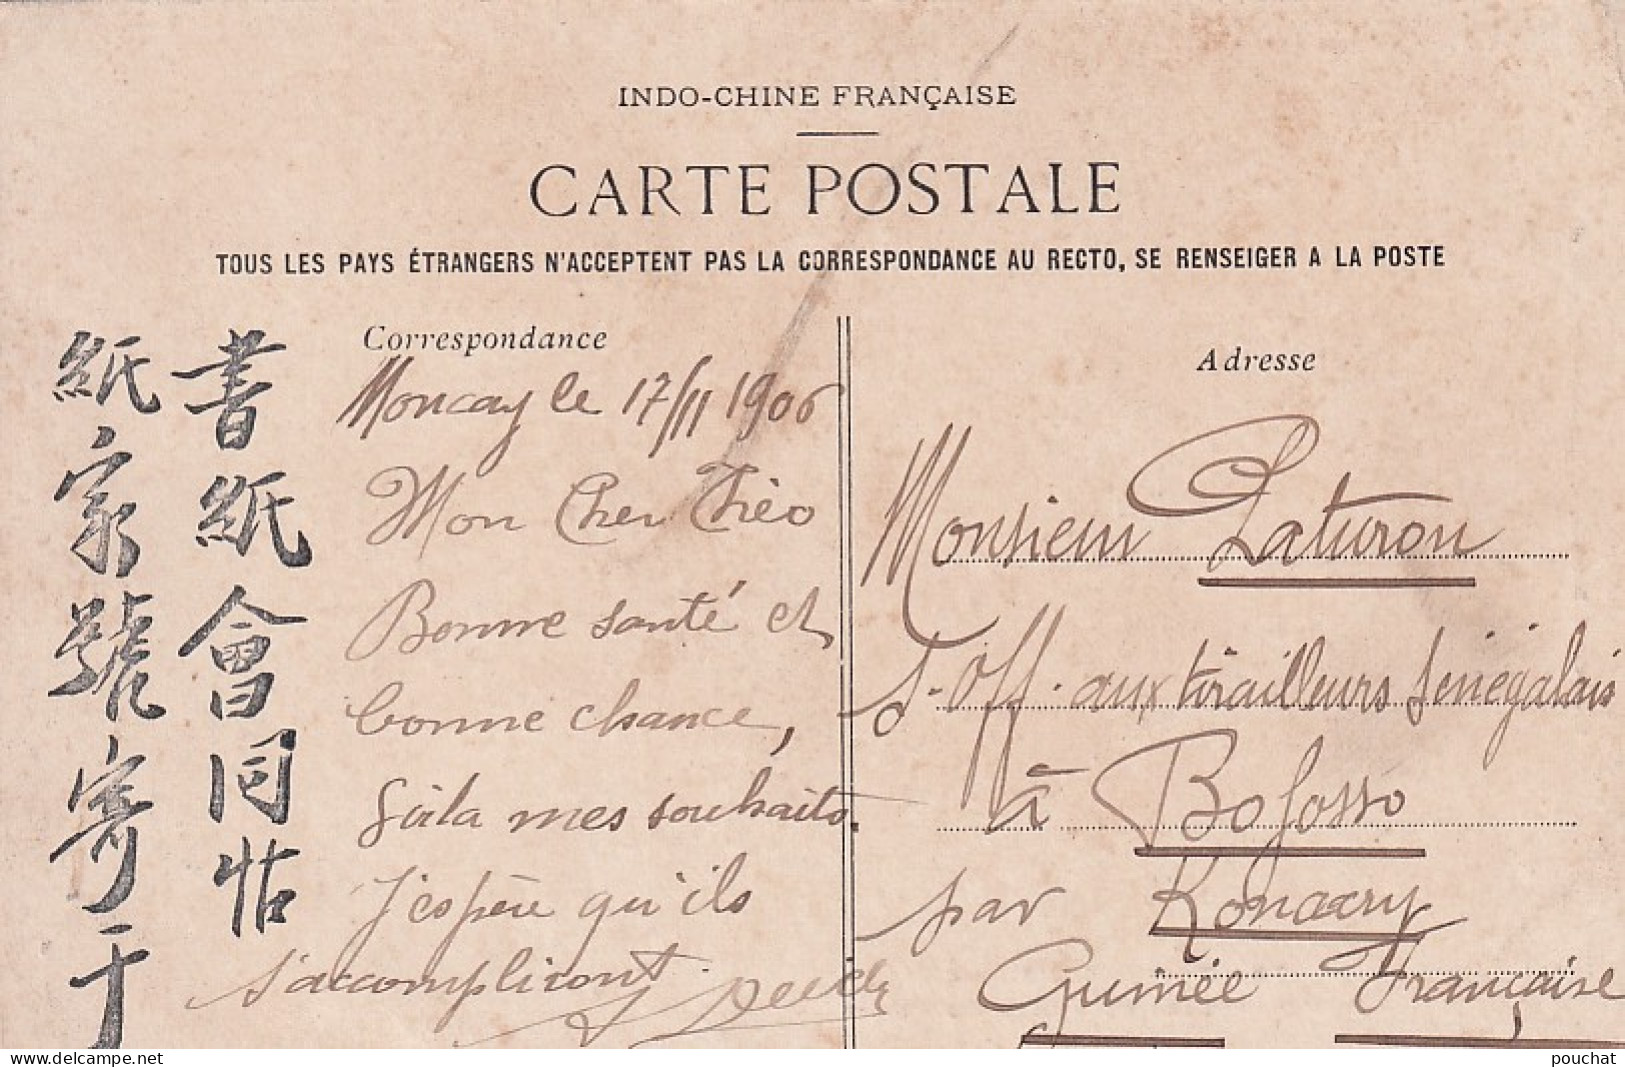 INDO-CHINE FRANÇAISE
CARTE POSTALE
TOUS LES PAYS ÉTRANGERS N'ACCEPTENT PAS LA CORRESPONDANCE AU RECTO, SE RENSEIGER A LA POSTE
Correspondance
Moncay le 17/11 1906
Mon Cher Théo
Bonne santé et
bonne chance,
voila mes souhaits.
J'espère qu'ils
s'accompliront.
Adresse
Monsieur Laturon
s-off. aux tirailleurs sénégalais
à Bofosso
par Konacry
Guinée Française
書紙會同帖
紙家號寄于
delcampe.net
pouchat